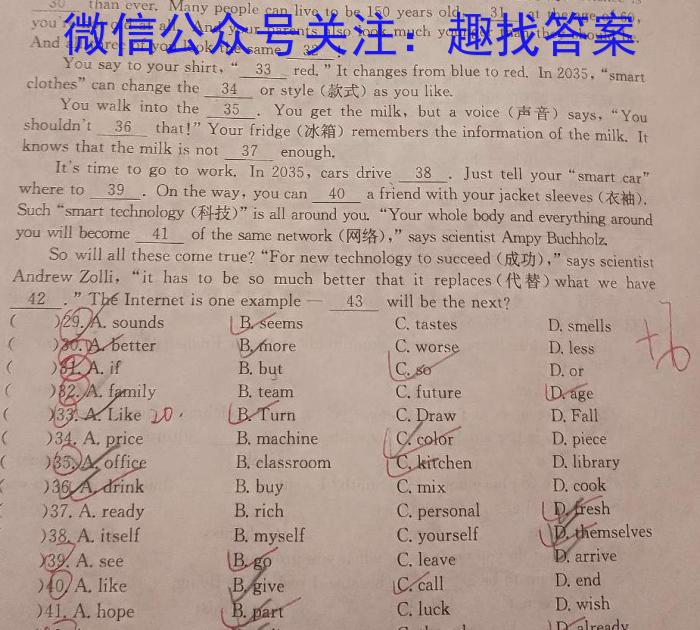 30 than ever. Many people can live to be 150 years old. 31 at the age of 60,
微信公众号关注：趣找答案
And 32
You say to your shirt, “ 33 red.” It changes from blue to red. In 2035, “smart
clothes” can change the 34 or style (款式) as you like.
You walk into the 35 . You get the milk, but a voice (声音) says, “You
shouldn't 36 that!” Your fridge (冰箱) remembers the information of the milk. It
knows that the milk is not 37 enough.
It's time to go to work. In 2035, cars drive 38 . Just tell your “smart car”
where to 39 . On the way, you can 40 a friend with your jacket sleeves (衣袖).
Such “smart technology (科技)” is all around you. “Your whole body and everything around
you will become 41 of the same network (网络),” says scientist Ampy Buchholz.
So will all these come true? “For new technology to succeed (成功),” says scientist
Andrew Zolli, “it has to be so much better that it replaces (代替) what we have
42 .” The Internet is one example — 43 will be the next?
( )29. A. sounds B. seems C. tastes D. smells
( )30. A. better B. more C. worse D. less
( )31. A. if B. but C. so D. or
( )32. A. family B. team C. future D. age
( )33. A. Like 20. B. Turn C. Draw D. Fall
( )34. A. price B. machine C. color D. piece
( )35. A. office B. classroom C. kitchen D. library
( )36. A. drink B. buy C. mix D. cook
)37. A. ready B. rich C. personal D. fresh
)38. A. itself B. myself C. yourself D. themselves
)39. A. see B. go C. leave D. arrive
)40. A. like B. give C. call D. end
)41. A. hope B. part C. luck D. wish
D. already
+6